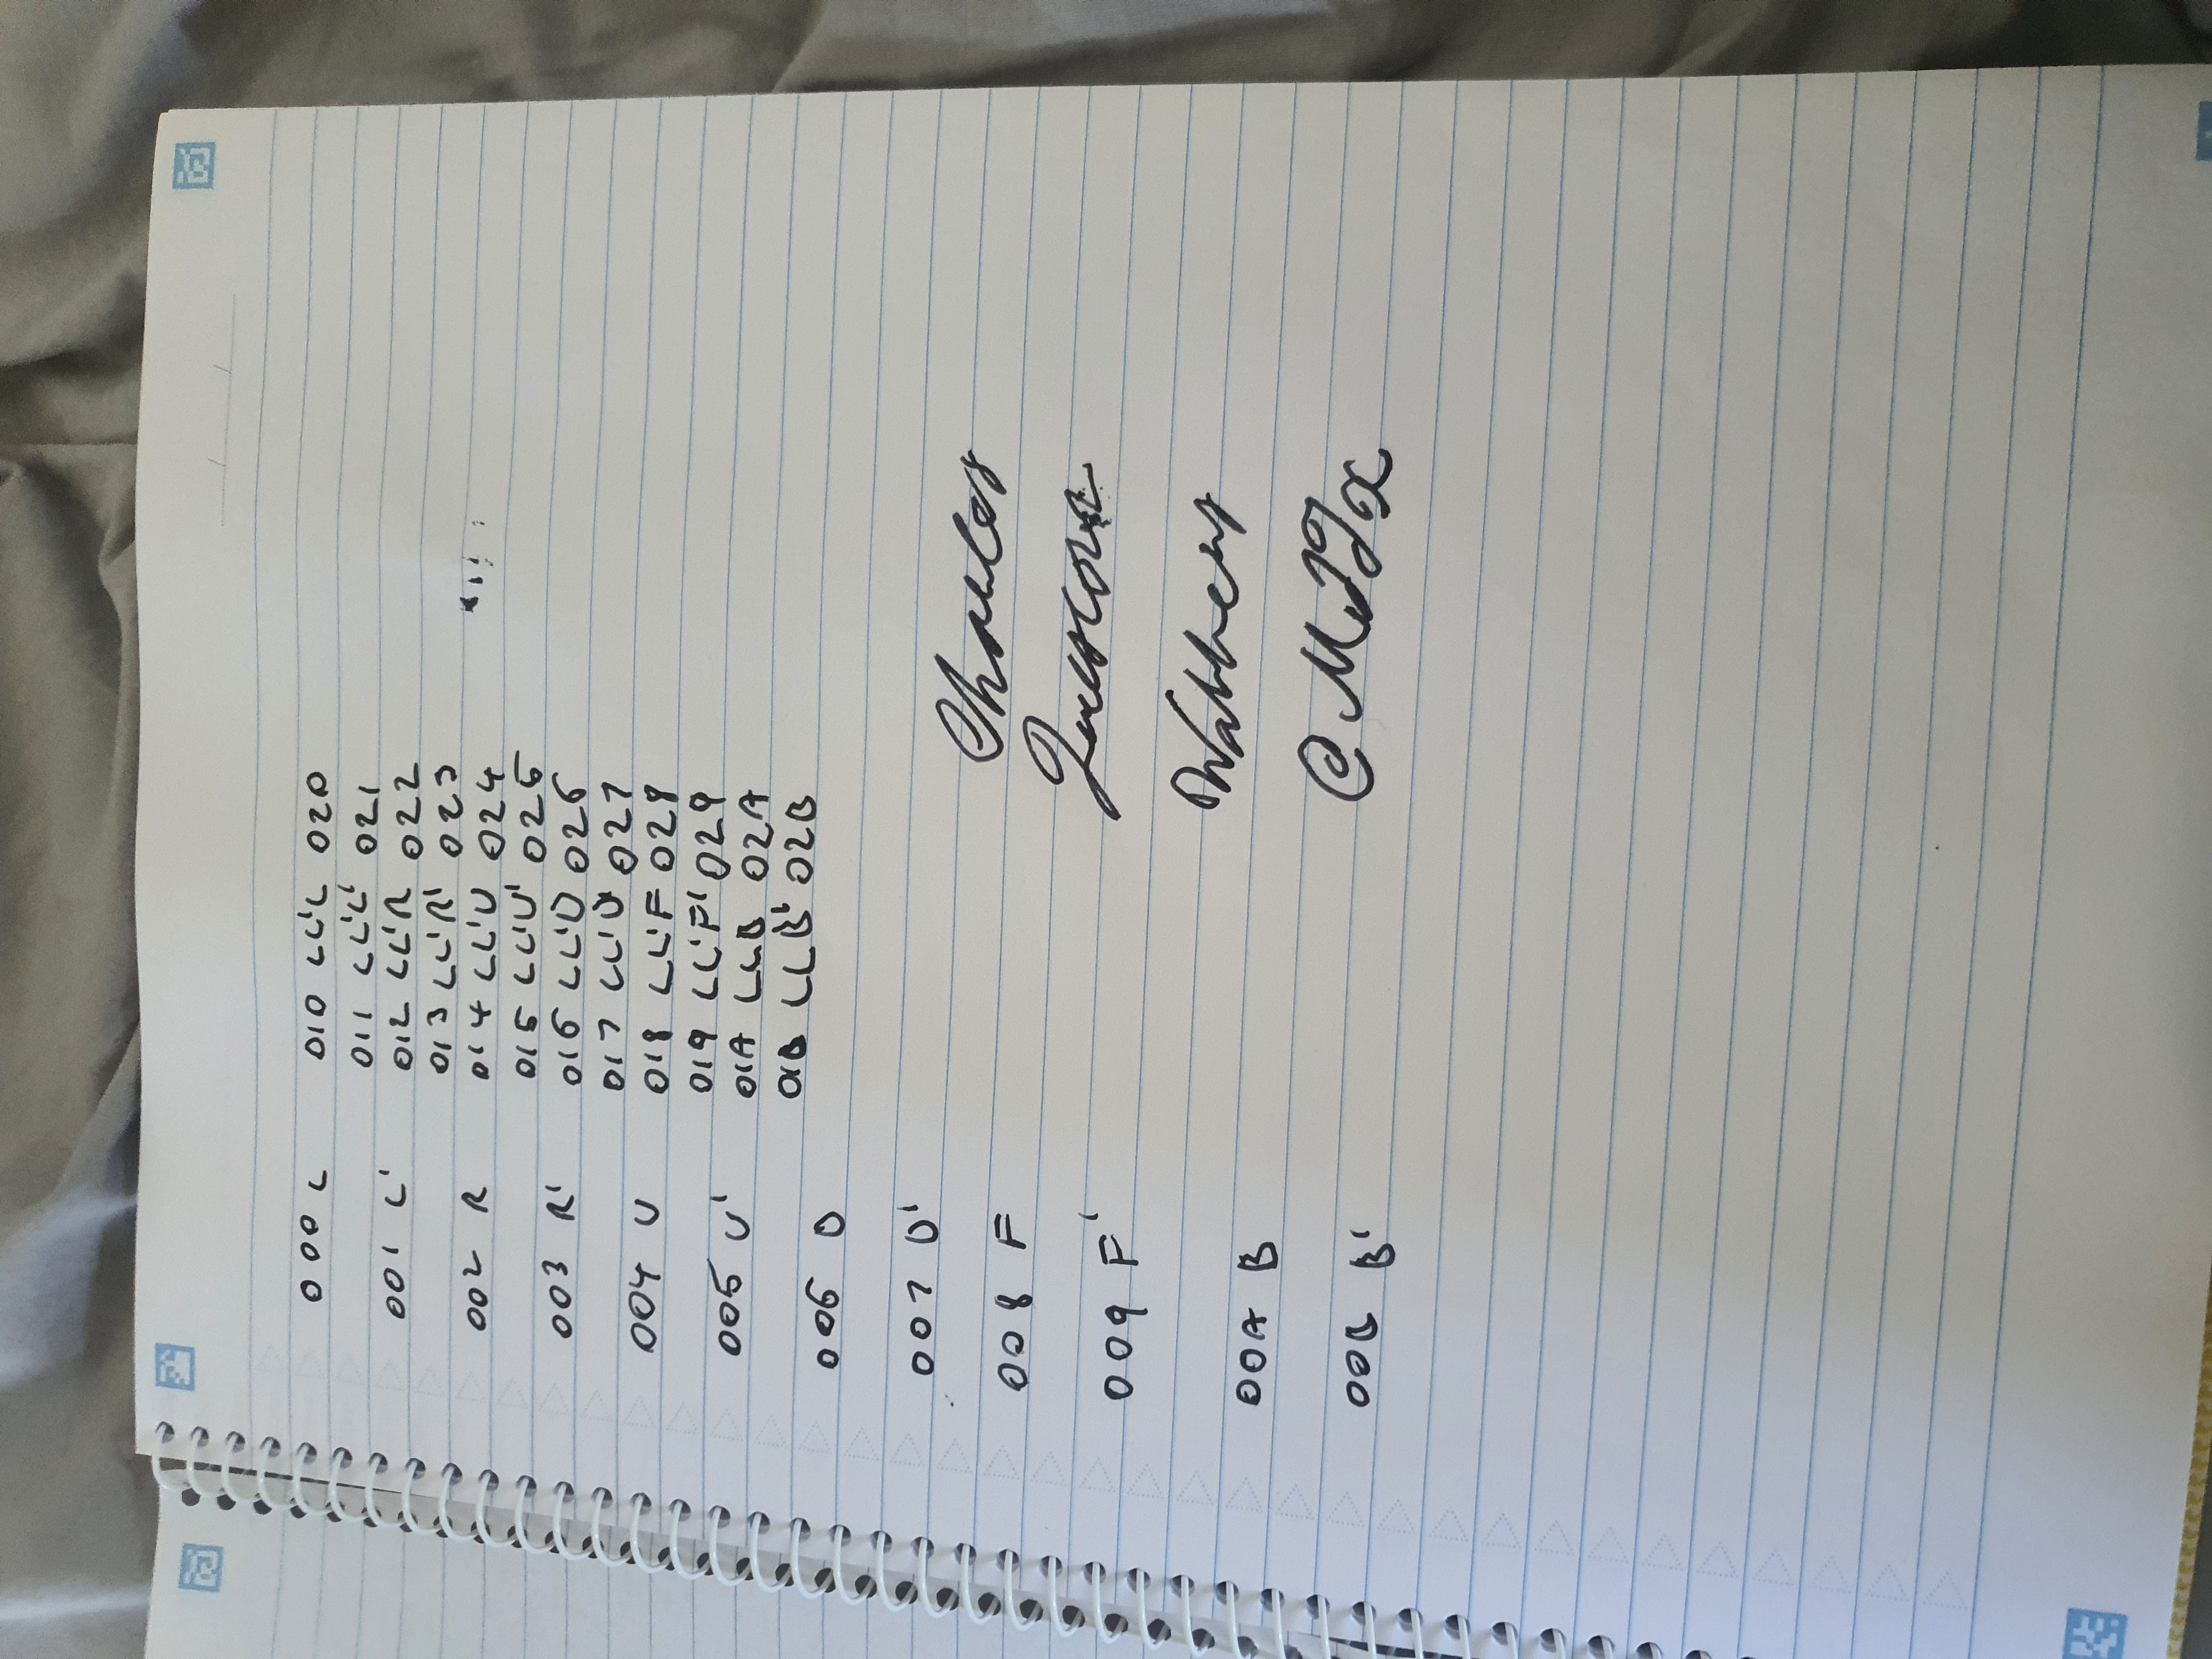 000 L
001 L'
002 R
003 R'
004 U
005 U'
006 D
007 D'
008 F
009 F'
00A B
00B B'
010 LL'L 020
011 LL'L' 021
012 LL'R 022
013 LL'R' 023
014 LL'U 024
015 LL'U' 025
016 LL'D 026
017 LL'D' 027
018 LL'F 028
019 LL'F' 029
01A LLB 02A
01B LLB' 02B
Charles
@MJJx